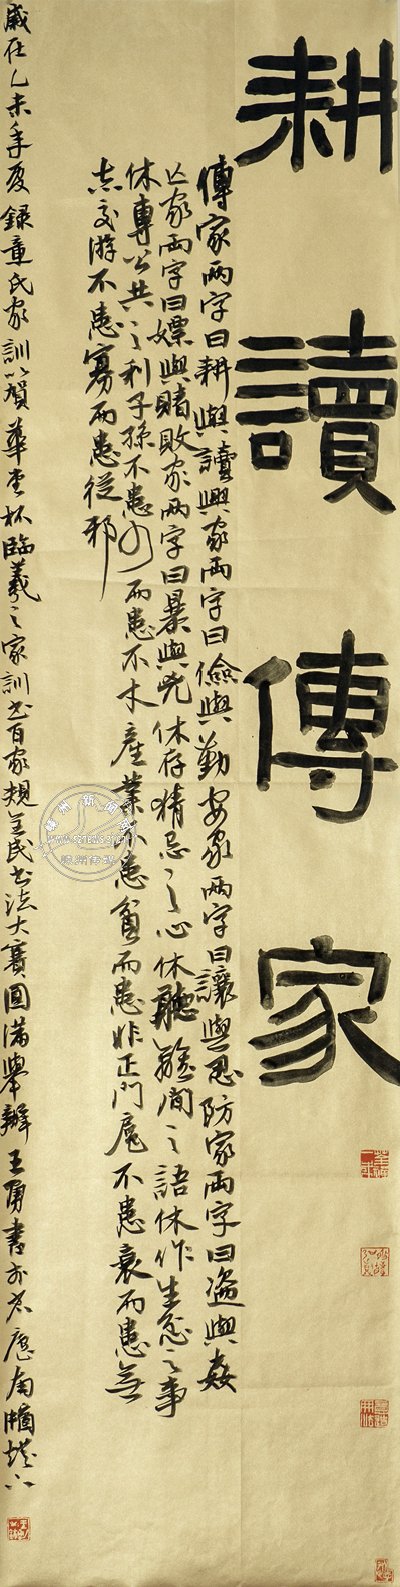 耕讀傳家
傳家兩字曰耕與讀興家兩字曰儉與勤安家兩字曰讓與忍防家兩字曰盜與姦
亡家兩字曰嫖與賭敗家兩字曰暴與兇休存猜忌之心休聽離間之語休作生忿之事
休專公共之利子孫不患少而患不才產業不患貧而患非正門戶不患衰而患無
志交游不患寡而患從邪
歲在乙未年夏錄章氏家訓以賀華堂杯臨羲之家訓書百家規全民書法大賽圓滿舉辦王勇書於